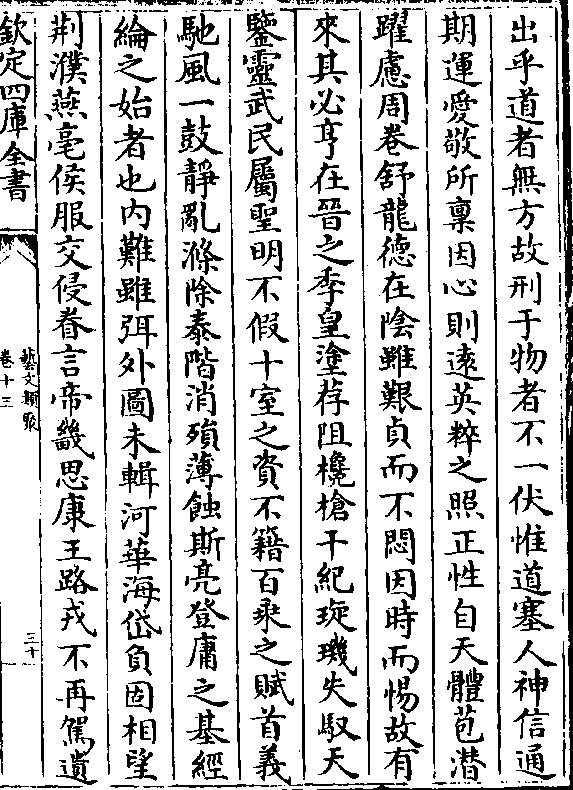 出乎道者無方故刑于物者不一伏惟道塞人神信通
期運愛敬所稟因心則遠英粹之照正性自天體苞潛
躍慮周卷舒龍德在陰雖艱貞而不悶因時而惕故有
來其必亨在晉之季皇塗荐阻欃槍干紀琁璣失馭天
鑒靈武民屬聖明不假十室之資不籍百乘之賦首義
馳風一鼓靜亂滌除泰階消殞薄蝕斯亮登庸之基經
綸之始者也内難雖弭外圖未輯河華海岱負固相望
荆濮燕亳侯服交侵眷言帝畿思康王路戎不再駕遺
欽定四庫全書
藝文類聚
卷十三
三十